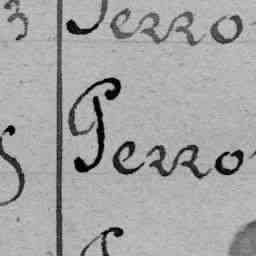 3 Perro
Perro